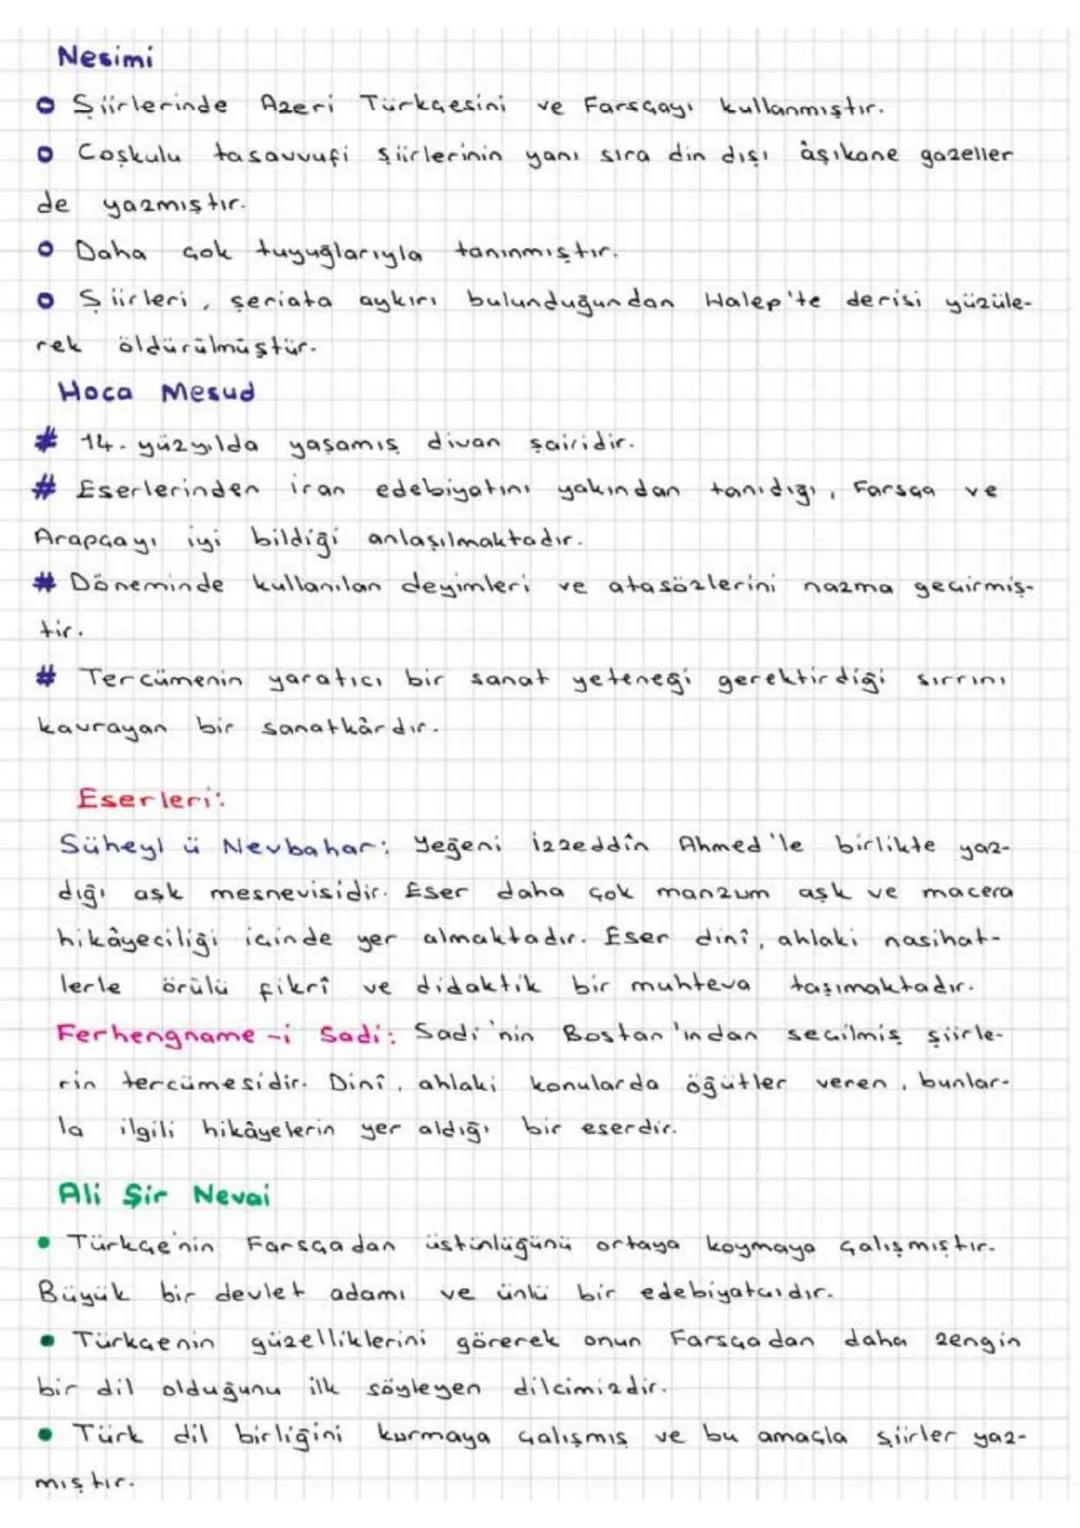 Nesimi
Şiirlerinde Azeri Türkçesini ve Farsçayı kullanmıştır.
Coşkulu tasavvufi şiirlerinin yanı sıra din dışı âşıkane gazeller
de yazmıştır.
Daha çok tuyuğlarıyla tanınmıştır.
Şiirleri, şeriata aykırı bulunduğundan Halep'te derisi yüzüle-
rek öldürülmüştür.
Hoca Mesud
# 14. yüzyılda yaşamış divan şairidir.
# Eserlerinden iran edebiyatını yakından tanıdığı, Farsça ve
Arapçayı iyi bildiği anlaşılmaktadır.
# Döneminde kullanılan deyimleri ve atasözlerini nazma geçirmiş-
tir.
# Tercümenin yaratıcı bir sanat yeteneği gerektirdiği sırrını
kavrayan bir sanatkârdır.
Eserleri:
Süheyl ü Nevbahar: Yeğeni İzzeddîn Ahmed'le birlikte yaz-
dığı aşk mesnevisidir. Eser daha çok manzum aşk ve macera
hikâyeciliği içinde yer almaktadır. Eser dinî, ahlaki nasihat-
lerle örülü fikrî ve didaktik bir muhteva taşımaktadır.
Ferhengname-i Sadi: Sadi'nin Bostan'ından seçilmiş şiirle-
rin tercümesidir. Dinî, ahlaki konularda öğütler veren, bunlar-
la ilgili hikâyelerin yer aldığı bir eserdir.
Ali Şir Nevai
• Türkçe'nin Farsçadan üstünlüğünü ortaya koymaya çalışmıştır.
Büyük bir devlet adamı ve ünlü bir edebiyatçıdır.
• Türkçenin güzelliklerini görerek onun Farsçadan daha zengin
bir dil olduğunu ilk söyleyen dilcimizdir.
• Türk dil birliğini kurmaya çalışmış ve bu amaçla şiirler yaz-
mıştır.